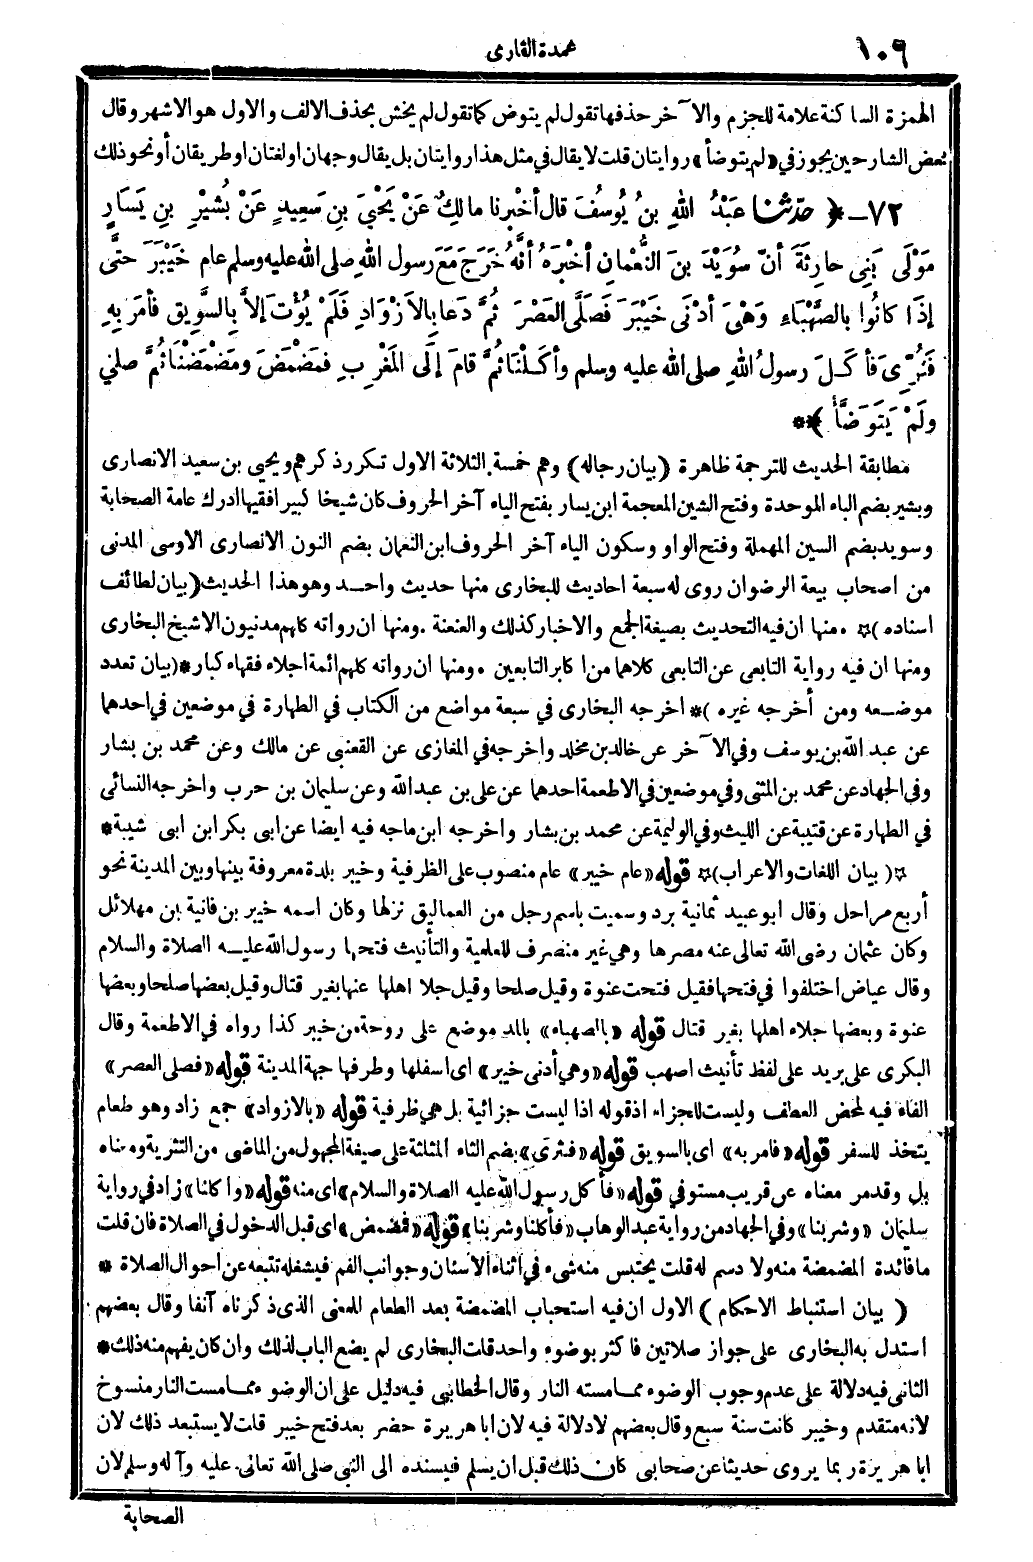 ١٠٩
عمدة القارى
الهمزة الساكنة علامة للجزم والآخر حذفها تقول لم يتوض كما تقول لم يخش بحذف الالف والاول هو الاشهر وقال
بعض الشارحين يجوز في «لم يتوضأ» روايتان قلت لا يقال في مثل هذا روايتان بل يقال وجهان او لغتان او طريقان أو نحو ذلك
٧٢ – ﴿ حدّثنا عَبْدُ اللهِ بنُ يُوسُفَ قال أخْبرنا مالِكٌ عَنْ يَحْيَى بنِ سَعِيدٍ عَنْ بُشَيْرِ بنِ يَسَارٍ
مَوْلَى بَنِي حارِثَةَ أنّ سُوَيْدَ بنَ النُّعْمانِ أخْبَرَهُ أنَّهُ خَرَجَ مَعَ رسول اللهِ صلى الله عليه وسلم عام خَيْبَرَ حتَّى
إذَا كانُوا بالصَّهْبَاءِ وَهْيَ أدْنَى خَيْبَرَ فَصَلَّى العَصْرَ ثُمَّ دَعا بالأزْوَادِ فَلَمْ يُؤْتَ إلاَّ بِالسَّوِيق فأمَرَ بِهِ
فَثُرِّيَ فأكَلَ رسولُ اللهِ صلى الله عليه وسلم وأكَلْنَا ثُمَّ قامَ إلَى المَغْرِبِ فمَضْمَضَ ومَضْمَضْنَا ثُمَّ صلي
ولَمْ يَتَوَضَّأْ ﴾ *
مطابقة الحديث للترجمة ظاهرة (بيان رجاله) وهم خمسة. الثلاثة الاول تكرر ذكرهم ويحيي بن سعيد الانصارى
وبشير بضم الباء الموحدة وفتح الشين المعجمة ابن يسار بفتح الياء آخر الحروف كان شيخا كبيرا فقيها ادرك عامة الصحابة
وسويد بضم السين المهملة وفتح الواو وسكون الياء آخر الحروف ابن النعمان بضم النون الانصارى الاوسى المدنى
من اصحاب بيعة الرضوان روى له سبعة احاديث للبخارى منها حديث واحد وهو هذا الحديث (بيان لطائف
اسناده)* . منها ان فيه التحديث بصيغة الجمع والاخبار كذلك والعنعنة . ومنها ان رواته كلهم مدنيون الا شيخ البخارى
ومنها ان فيه رواية التابعى عن التابعى كلاهما من اكابر التابعين . ومنها ان رواته كلهم ائمة اجلاء فقهاء كبار *(بيان تعدد
موضعه ومن أخرجه غيره )* اخرجه البخارى في سبعة مواضع من الكتاب في الطهارة في موضعين في احدهما
عن عبد الله بن يوسف وفي الآخر عن خالد بن مخلد واخرجه في المغازى عن القعنبى عن مالك وعن محمد بن بشار
وفي الجهاد عن محمد بن المثنى وفي موضعين في الاطعمة احدهما عن على بن عبد الله وعن سليمان بن حرب واخرجه النسائى
في الطهارة عن قتيبة عن الليث وفي الوليمة عن محمد بن بشار واخرجه ابن ماجه فيه ايضا عن ابى بكر ابن ابى شيبة *
*( بيان اللغات والاعراب)* قوله «عام خيبر» عام منصوب على الظرفية وخيبر بلدة معروفة بينها وبين المدينة نحو
أربع مراحل وقال ابو عبيد ثمانية برد وسميت باسم رجل من العماليق نزلها وكان اسمه خيبر بن فانية بن مهلائل
وكان عثمان رضى الله تعالى عنه مصرها وهي غير منصرف للعلمية والتأنيث فتحها رسول الله عليه الصلاة والسلام
وقال عياض اختلفوا في فتحها فقيل فتحت عنوة وقيل صلحا وقيل جلا اهلها عنها بغير قتال وقيل بعضها صلحا وبعضها
عنوة وبعضها جلاء اهلها بغير قتال قوله «بالصهباء» بالمد موضع على روحة من خيبر كذا رواه في الاطعمة وقال
البكرى على بريد على لفظ تأنيث اصهب قوله «وهي أدنى خيبر» اى اسفلها وطرفها جهة المدينة قوله «فصلى العصر»
الفاء فيه لمحض العطف وليست للجزاء اذ قوله اذا ليست جزائية بل هي ظرفية قوله «بالازواد» جمع زاد وهو طعام
يتخذ للسفر قوله «فامر به» اى بالسويق قوله «فثرى» بضم الثاء المثلثة على صيغة المجهول من الماضى من التثرية ومعناه
بل وقد مر معناه عن قريب مستوفي قوله «فأكل رسول الله عليه الصلاة والسلام» اى منه قوله «واكلنا» زاد في رواية
سليمان «وشربنا» وفي الجهاد من رواية عبد الوهاب «فأكلنا وشربنا» قوله «فمضمض» اى قبل الدخول في الصلاة فان قلت
ما فائدة المضمضة منه ولا دسم له قلت يحتبس منه شيء في اثناء الاسنان وجوانب الفم فيشغله تتبعه عن احوال الصلاة *
( بيان استنباط الاحكام ) الاول ان فيه استحباب المضمضة بعد الطعام للمعنى الذى ذكرناه آنفا وقال بعضهم
استدل به البخارى على جواز صلاتين فاكثر بوضوء واحد قلت البخارى لم يضع الباب لذلك وان كان يفهم منه ذلك *
الثانى فيه دلالة على عدم وجوب الوضوء مما مسته النار وقال الخطابى فيه دليل على ان الوضوء مما مست النار منسوخ
لانه متقدم وخيبر كانت سنة سبع وقال بعضهم لا دلالة فيه لان ابا هريرة حضر بعد فتح خيبر قلت لا يستبعد ذلك لان
ابا هريرة ربما يروى حديثا عن صحابى كان ذلك قبل ان يسلم فيسنده الى النبي صلى الله تعالى عليه وآله وسلم لان
الصحابة